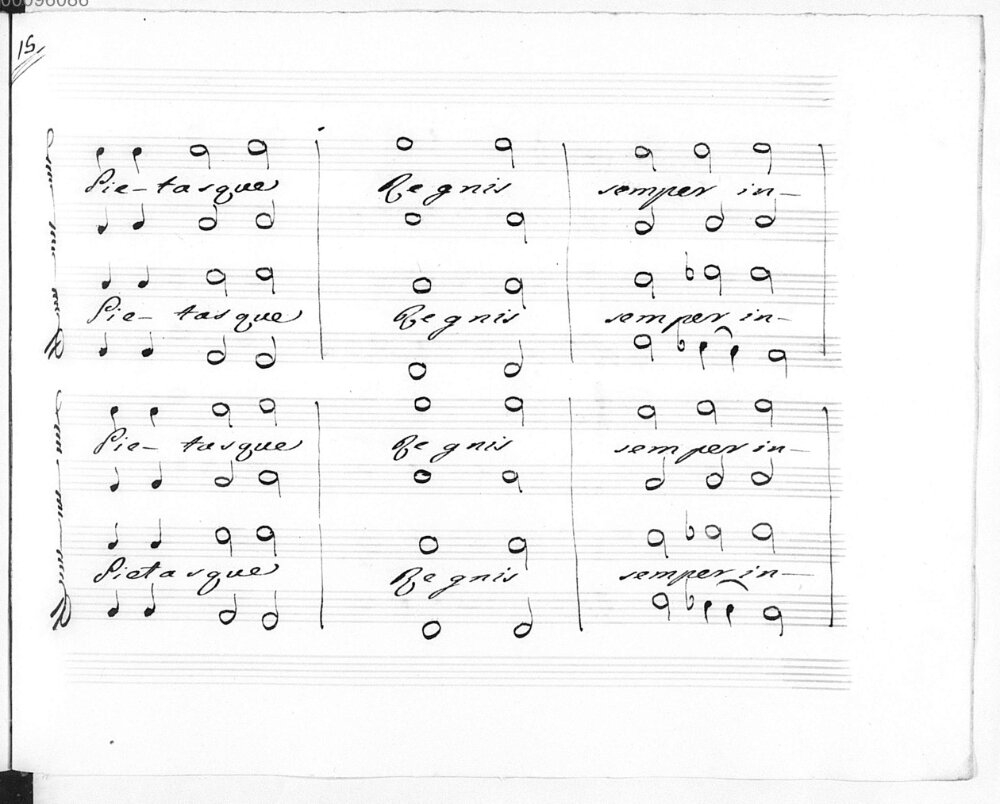 00096086
15.
Pie- tasque Regnis semper in-
Pie- tasque Regnis semper in-
Pie- tasque Regnis semper in-
Pietasque Regnis semper in-